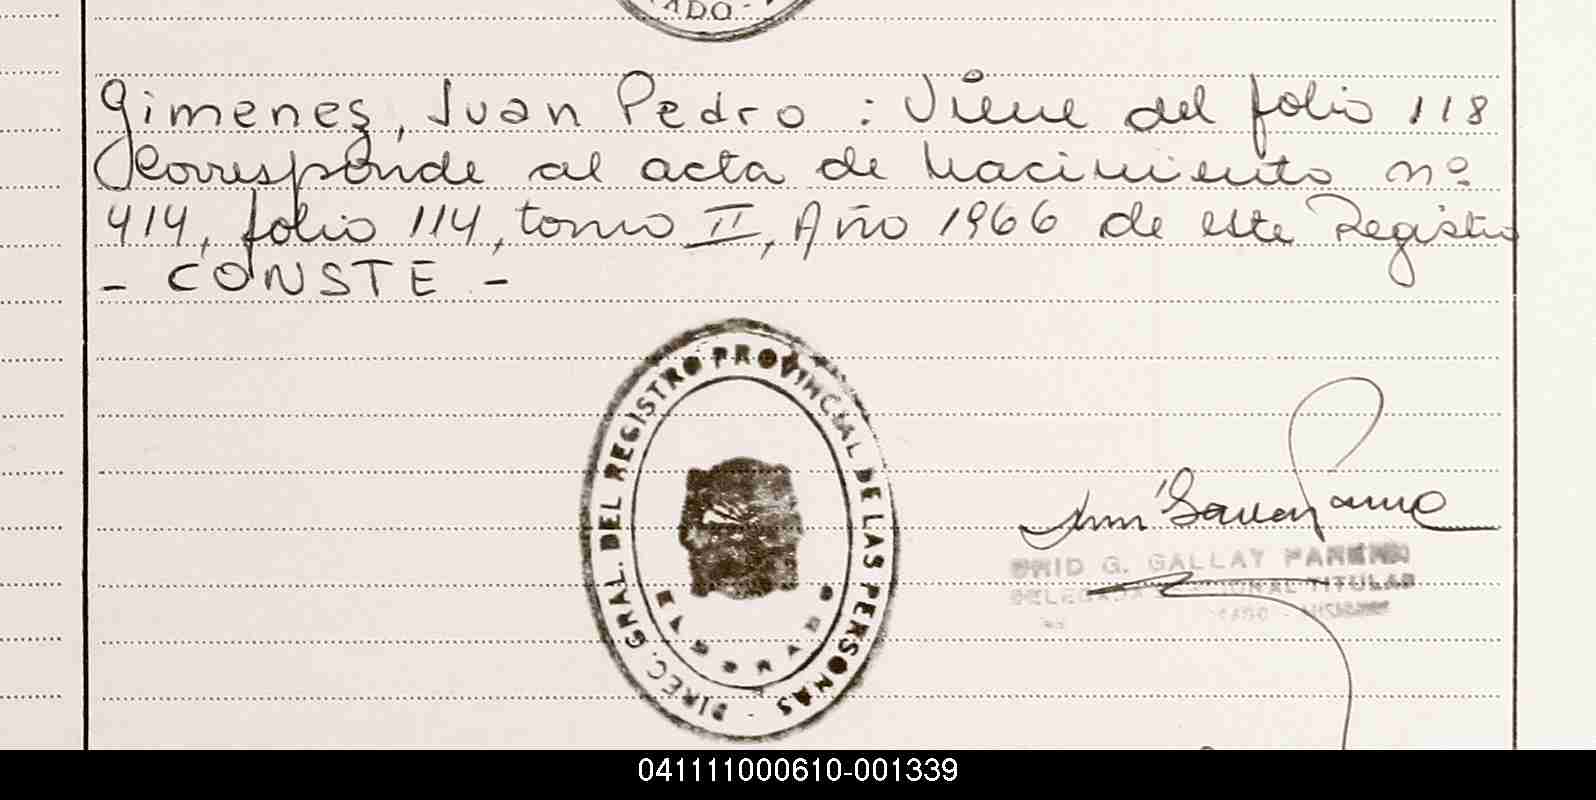 ADO -
Gimenez, Juan Pedro : Viene del folio 118
Corresponde al acta de Nacimiento nº
414, folio 114, tomo II, Año 1966 de este Registro
- CONSTE -
DIREC. GRAL. DEL REGISTRO PROVINCIAL DE LAS PERSONAS -
ELDORADO
G. GALLAY
TITULAR
041111000610-001339